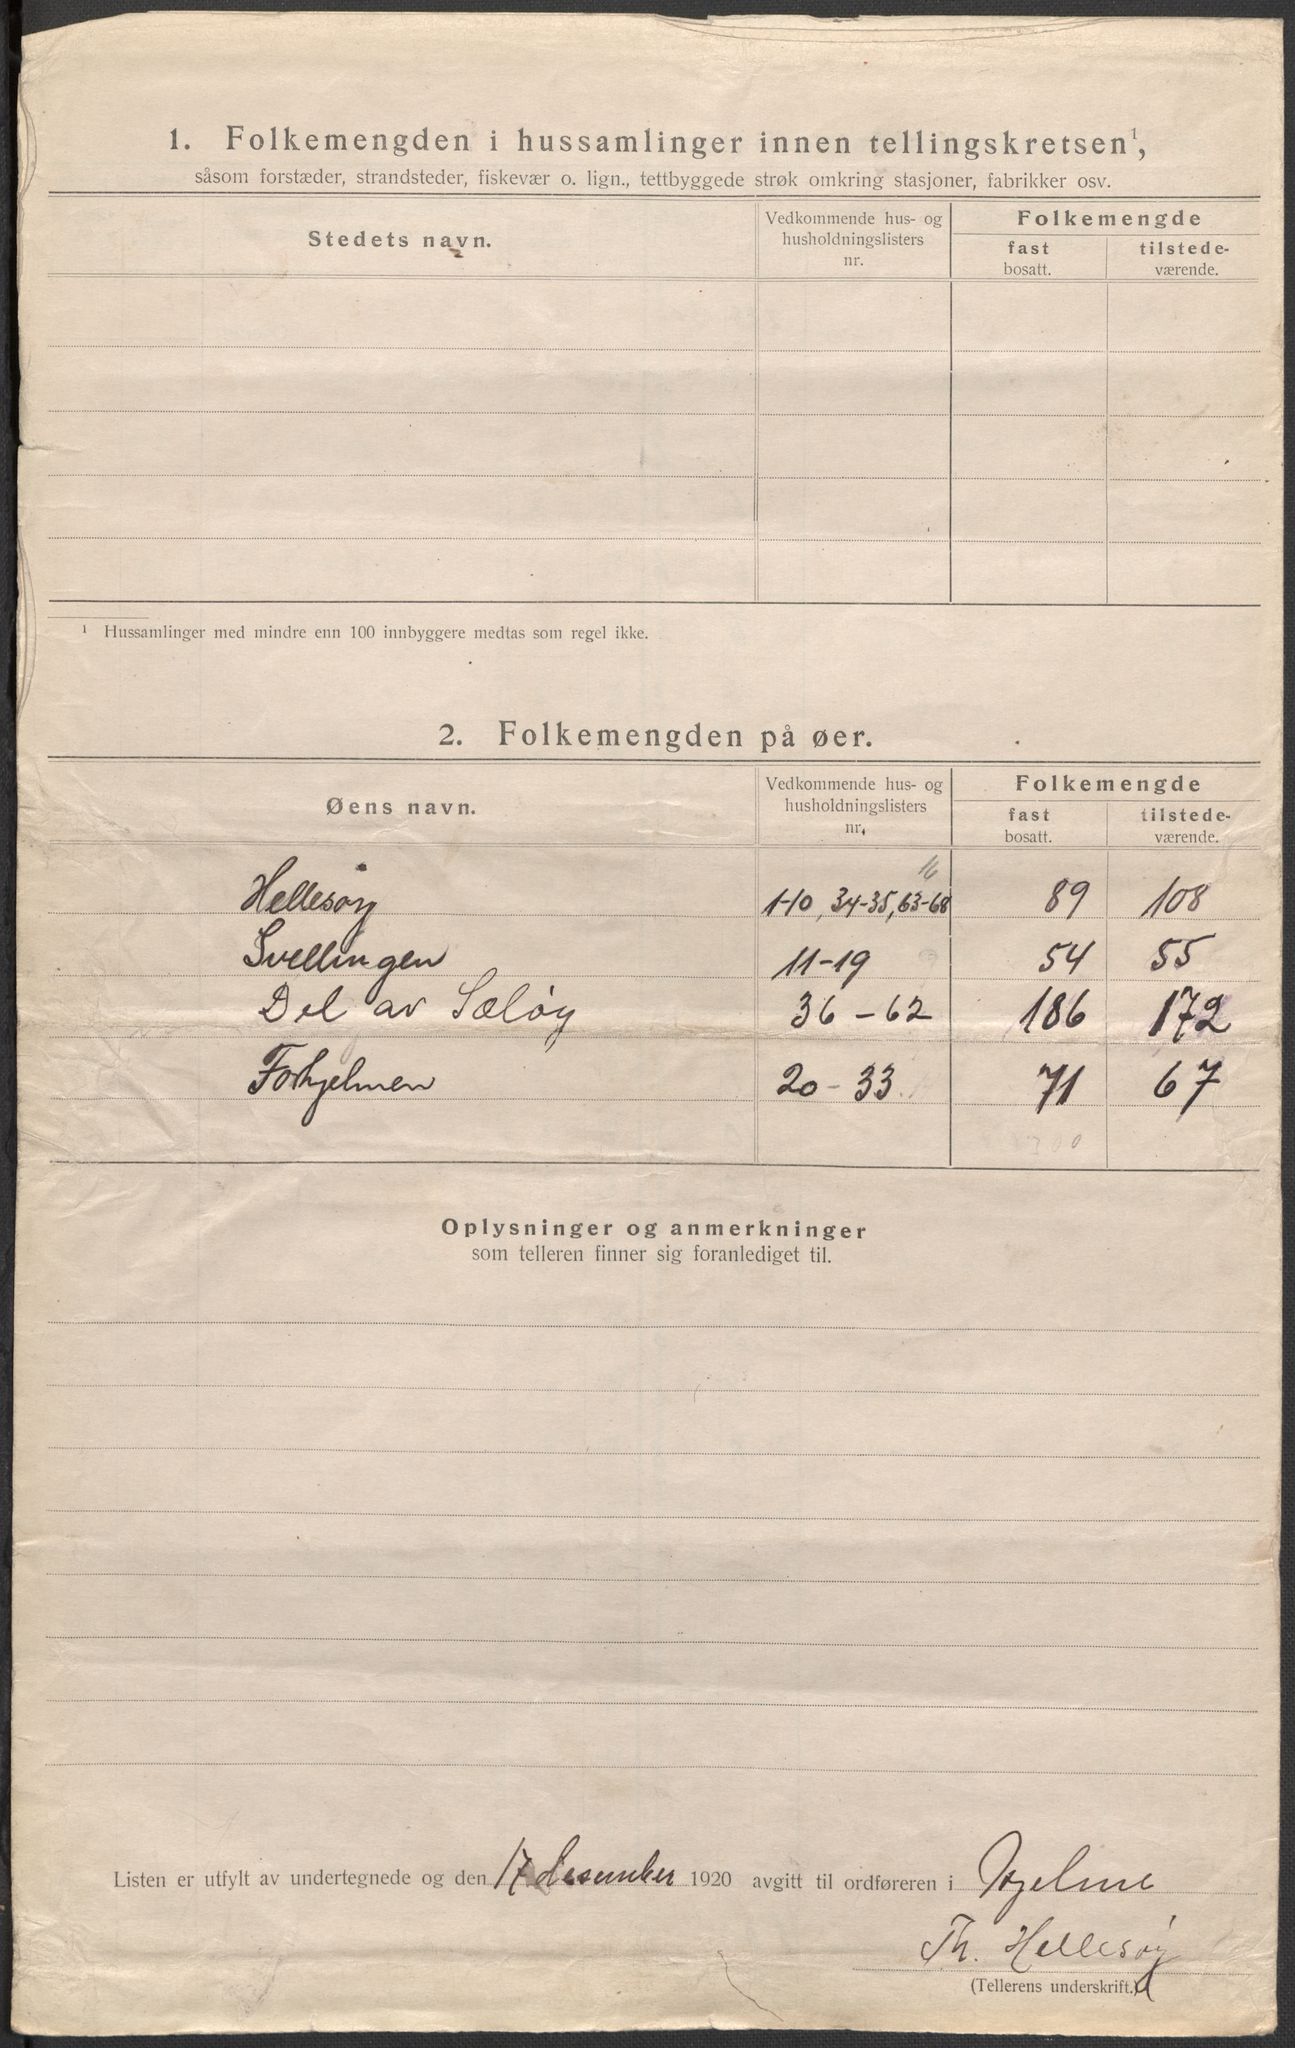 1. Folkemengden i hussamlinger innen tellingskretsen¹,
såsom forstæder, strandsteder, fiskevær o. lign., tettbyggede strøk omkring stasjoner, fabrikker osv.
Stedets navn.
Vedkommende hus- og
husholdningslisters
nr.
Folkemengde
fast
bosatt.
tilstede-
værende.
¹ Hussamlinger med mindre enn 100 innbyggere medtas som regel ikke.
2. Folkemengden på øer.
Øens navn.
Vedkommende hus- og
husholdningslisters
nr.
Folkemengde
fast
bosatt.
tilstede-
værende.
16
Hellesøy 1-10, 34-35, 63-68 89 108
Svellingen 11-19 54 55
Del av Sæløy 36-62 186 172
Forhjelmen 20-33 71 67
Oplysninger og anmerkninger
som telleren finner sig foranlediget til.
Listen er utfylt av undertegnede og den 17 desember 1920 avgitt til ordføreren i Hjelme
Th. Hellesøy
(Tellerens underskrift.)